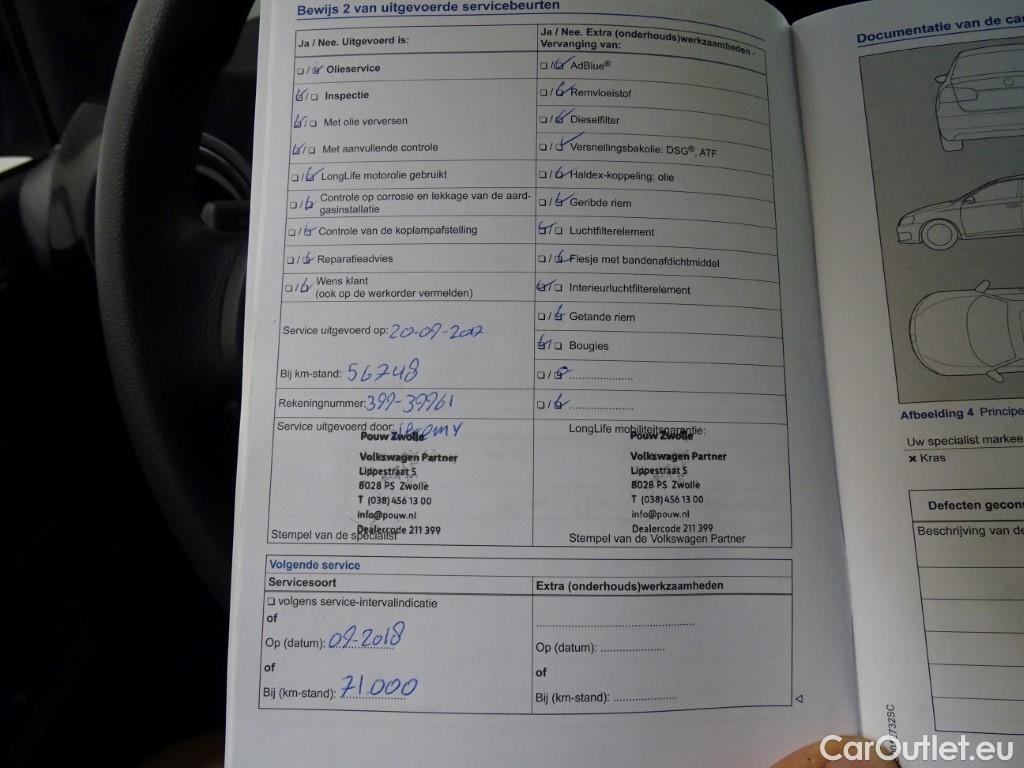 Bewijs 2 van uitgevoerde servicebeurten
Ja / Nee. Uitgevoerd is:
❑ / ☑ Olieservice
☑ / ❑ Inspectie
☑ / ❑ Met olie verversen
☑ / ❑ Met aanvullende controle
❑ / ☑ LongLife motorolie gebruikt
❑ / ☑ Controle op corrosie en lekkage van de aard-
gasinstallatie
❑ / ☑ Controle van de koplampafstelling
❑ / ☑ Reparatieadvies
❑ / ☑ Wens klant
(ook op de werkorder vermelden)
Service uitgevoerd op: 20-09-2017
Bij km-stand: 56748
Rekeningnummer: 399-39961
Service uitgevoerd door: Jeremy
Pouw Zwolle
Volkswagen Partner
Lippestraat 5
8028 PS Zwolle
T (038) 456 13 00
info@pouw.nl
Dealercode 211 399
Stempel van de specialist
Ja / Nee. Extra (onderhouds)werkzaamheden -
Vervanging van:
❑ / ☑ AdBlue®
❑ / ☑ Remvloeistof
❑ / ☑ Dieselfilter
❑ / ☑ Versnellingsbakolie: DSG®, ATF
❑ / ☑ Haldex-koppeling: olie
❑ / ☑ Geribde riem
☑ / ❑ Luchtfilterelement
❑ / ☑ Flesje met bandenafdichtmiddel
☑ / ❑ Interieurluchtfilterelement
❑ / ☑ Getande riem
☑ / ❑ Bougies
❑ / ☑ .....................
❑ / ☑ .....................
LongLife mobiliteitsgarantie:
Pouw Zwolle
Volkswagen Partner
Lippestraat 5
8028 PS Zwolle
T (038) 456 13 00
info@pouw.nl
Dealercode 211 399
Stempel van de Volkswagen Partner
Volgende service
Servicesoort
❑ volgens service-intervalindicatie
of
Op (datum): 09-2018
of
Bij (km-stand): 71.000
Extra (onderhouds)werkzaamheden
Op (datum): .....................
of
Bij (km-stand): .....................
Documentatie van de
Afbeelding 4 Principe
Uw specialist markee
× Kras
Defecten gecons
Beschrijving van de
732SC
CarOutlet.eu